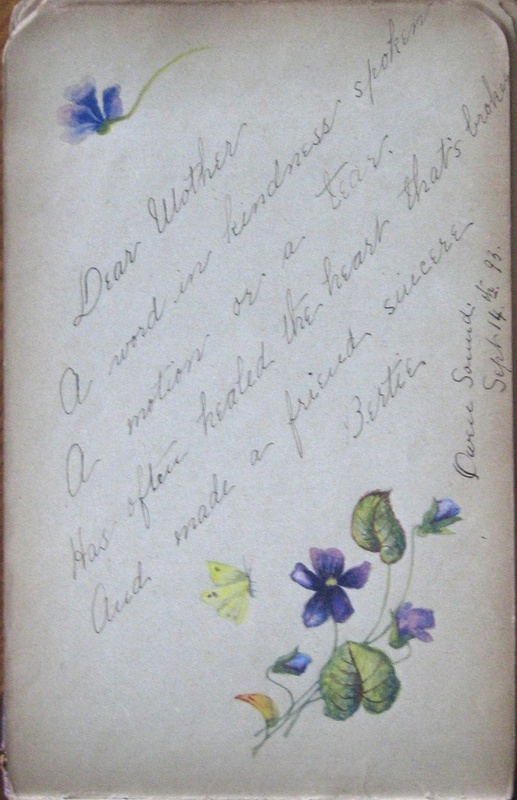 Dear Mother
A word in kindness spoken
A motion or a tear.
Has often healed the heart that's broken
And made a friend sincere
Bertie
Owen Sound.
Sept 14th 93.